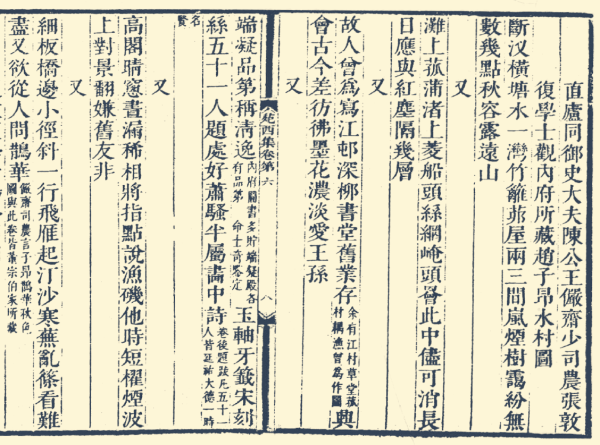 直廬同御史大夫陳公王儼齋少司農張敦
復學士觀內府所藏趙子昂水村圖
斷汊橫塘水一灣竹籬茆屋兩三間嵐煙樹靄紛無
數幾點秋容露遠山
又
灘上菰蒲渚上菱船頭絲網崦頭罾此中儘可消長
日應與紅塵隔幾層
又
故人曾爲寫江邨深柳書堂舊業存余有江村草堂菰村耦漁曾為作圖興
會古今差彷彿墨花濃淡愛王孫
又
苑西集卷第六 八
端凝品第稱淸逸內府圖書多貯端凝殿各有品第 命士奇鑒定玉軸牙籤宋刻
絲五十一人題處好蕭騷半屬畵中詩卷後題跋凡五十一人皆延祐大德一時
名賢
又
高閣晴窻晝漏稀相將指點說漁磯他時短櫂煙波
上對景翻嫌舊友非
又
細板橋邊小徑斜一行飛雁起汀沙寒蕪亂篠看難
盡又欲從人問鵲華儼齋司農言子昂鵲華秋色圖與此卷皆董宗伯家所藏